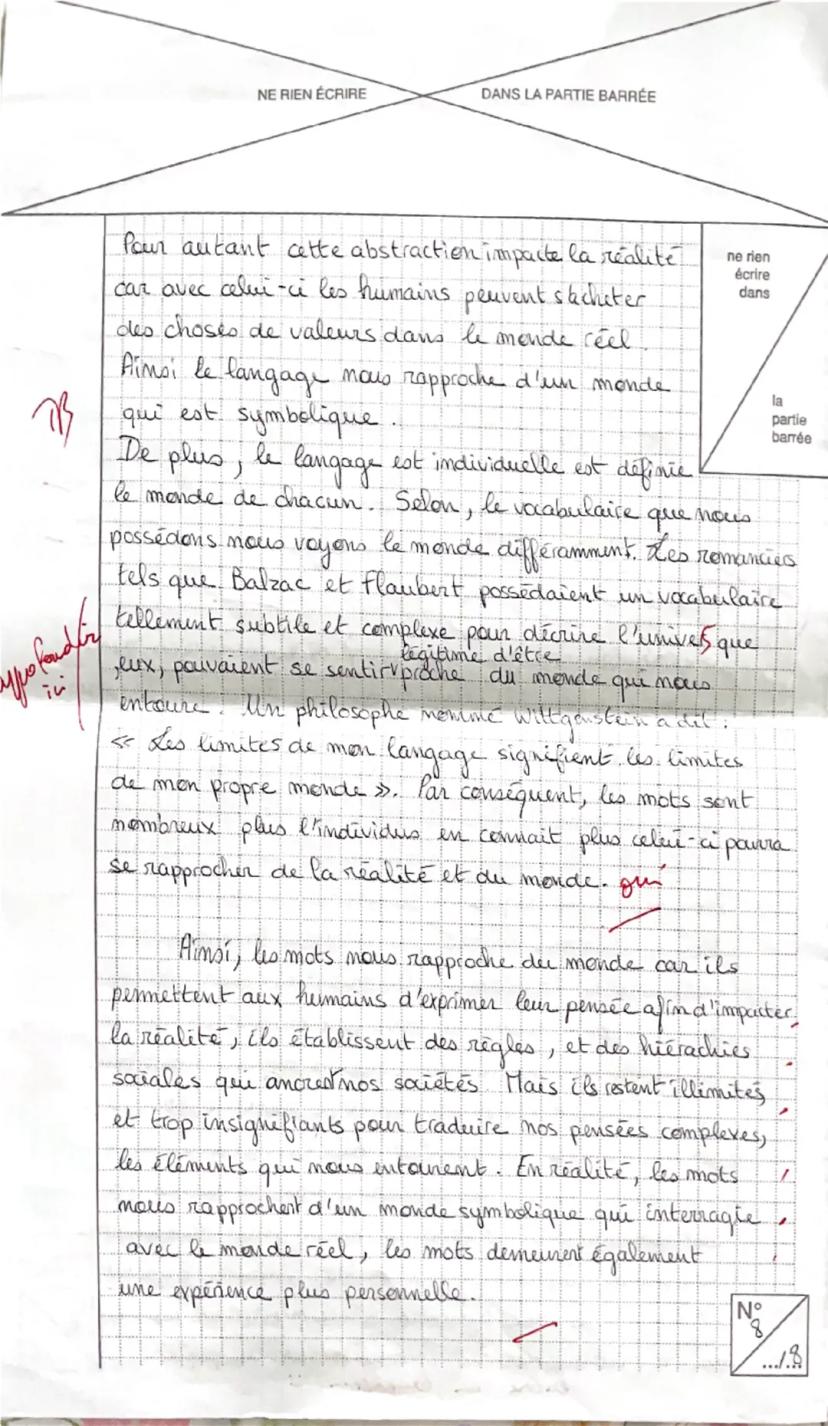 NE RIEN ÉCRIRE DANS LA PARTIE BARRÉE
ne rien
écrire
dans
la
partie
barrée
Pour autant cette abstraction impacte la réalité
car avec celui-ci les humains peuvent s'acheter
des choses de valeurs dans le monde réel.
Ainsi le langage nous rapproche d'un monde
TB
qui est symbolique.
De plus, le langage est individuelle est définie
le monde de chacun. Selon, le vocabulaire que nous
possédons nous voyons le monde différamment. Les romanciers
tels que Balzac et Flaubert possédaient un vocabulaire
tellement subtile et complexe pour décrire l'univers que
légitime d'être
eux, pouvaient se sentir proche du monde qui nous
entoure. Un philosophe nommé Wittgenstein a dit :
« Les limites de mon langage signifient les limites
de mon propre monde ». Par conséquent, les mots sont
nombreux plus l'individus en connait plus celui-ci pourra
se rapprocher de la réalité et du monde. oui
Ainsi, les mots nous rapproche du monde car ils
permettent aux humains d'exprimer leur pensée afin d'impacter
la réalité, ils établissent des règles, et des hiérachies
sociales qui ancrent nos sociétés. Mais ils restent illimités,
et trop insignifiants pour traduire nos pensées complexes,
les éléments qui nous entourent. En réalité, les mots
nous rapprochent d'un monde symbolique qui interragie
avec le monde réel, les mots demeurent également
une expérience plus personnelle.
N°
8
.../.8